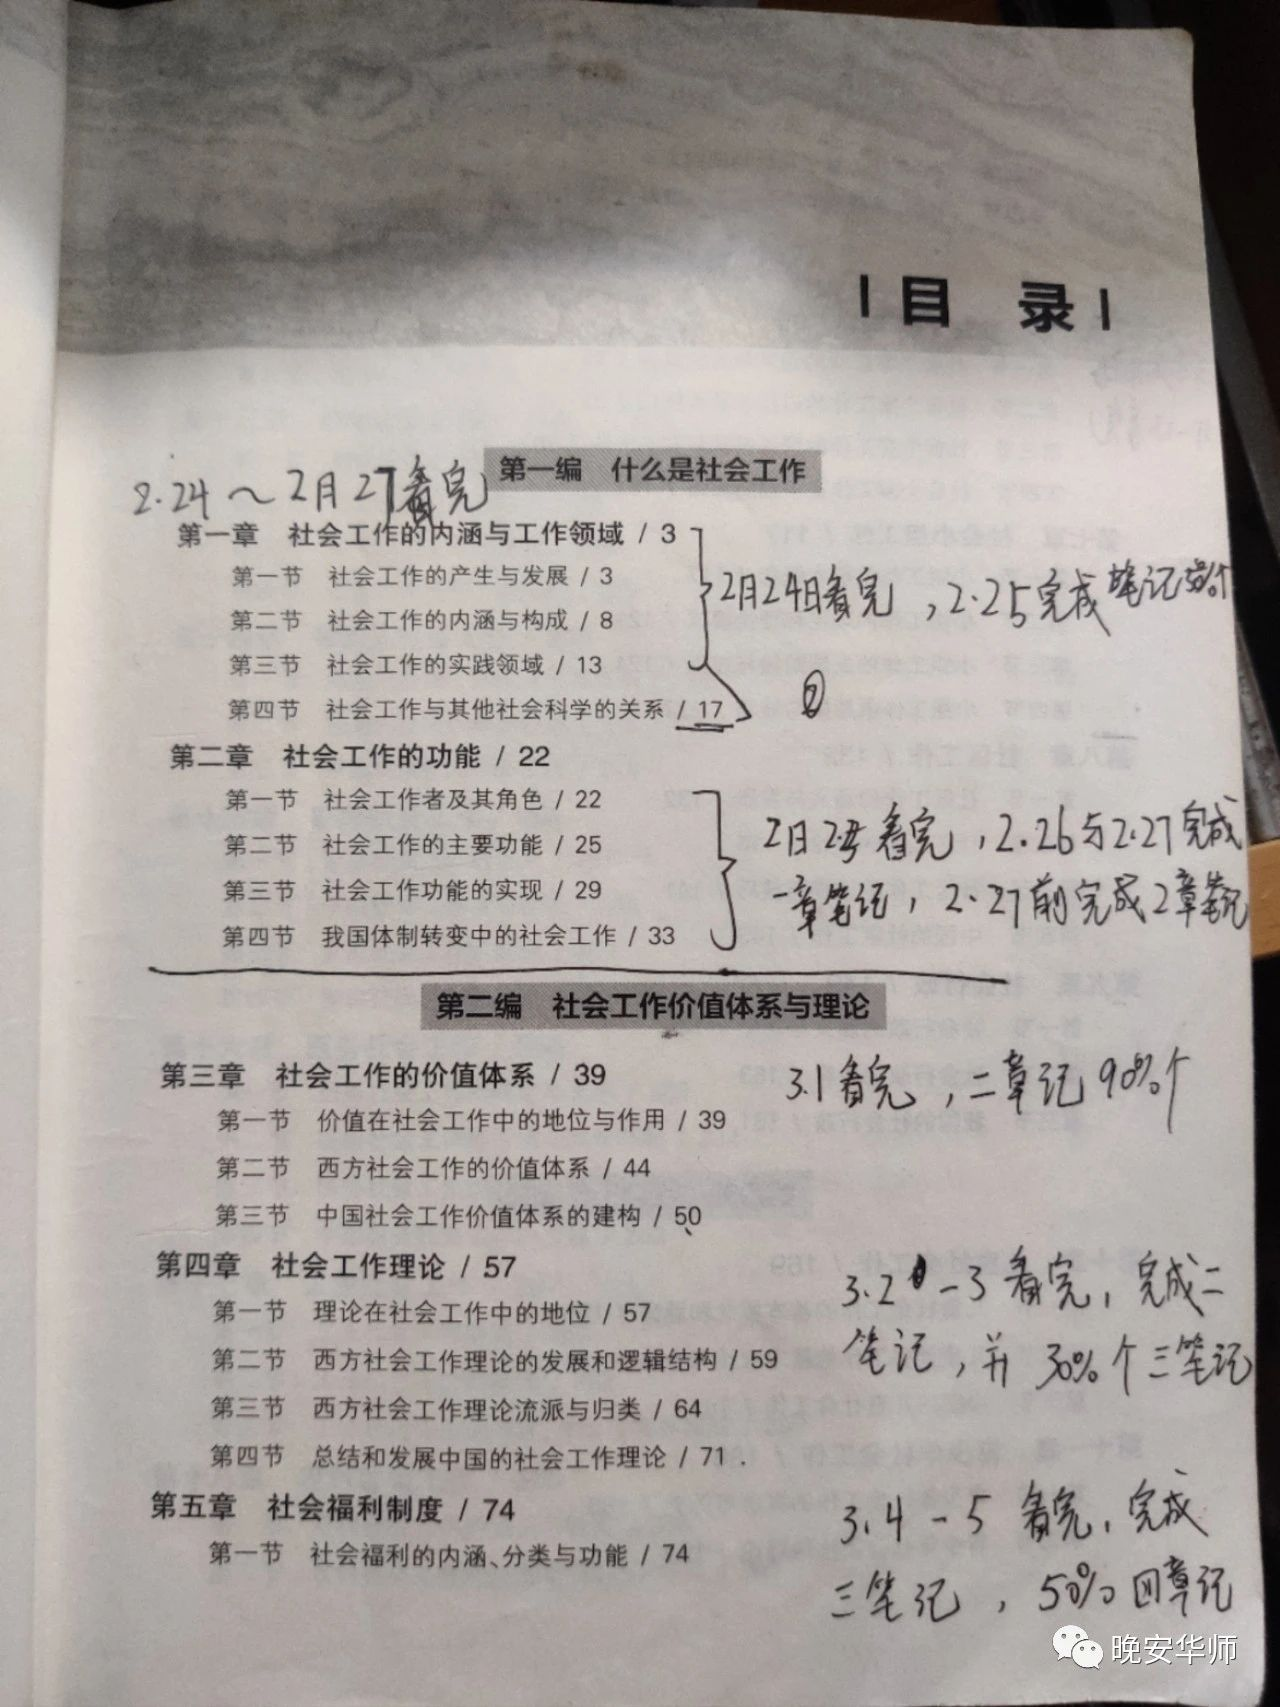 目 录
第一编 什么是社会工作
2.24～2月27看完
第一章 社会工作的内涵与工作领域 / 3
第一节 社会工作的产生与发展 / 3
2月24日看完，2.25完成笔记
第二节 社会工作的内涵与构成 / 8
第三节 社会工作的实践领域 / 13
第四节 社会工作与其他社会科学的关系 / 17
第二章 社会工作的功能 / 22
第一节 社会工作者及其角色 / 22
第二节 社会工作的主要功能 / 25
看完，2.26与2.27完成
第三节 社会工作功能的实现 / 29
一章笔记，2.27前完成2章笔记
第四节 我国体制转变中的社会工作 / 33
第二编 社会工作价值体系与理论
第三章 社会工作的价值体系 / 39
3.1看完，二章记90%个
第一节 价值在社会工作中的地位与作用 / 39
第二节 西方社会工作的价值体系 / 44
第三节 中国社会工作价值体系的建构 / 50
第四章 社会工作理论 / 57
3.2-3看完，完成二
第一节 理论在社会工作中的地位 / 57
笔记，并30%个三笔记
第二节 西方社会工作理论的发展和逻辑结构 / 59
第三节 西方社会工作理论流派与归类 / 64
第四节 总结和发展中国的社会工作理论 / 71
第五章 社会福利制度 / 74
3.4-5看完，完成
第一节 社会福利的内涵、分类与功能 / 74
三笔记，50%四章记
晚安华师